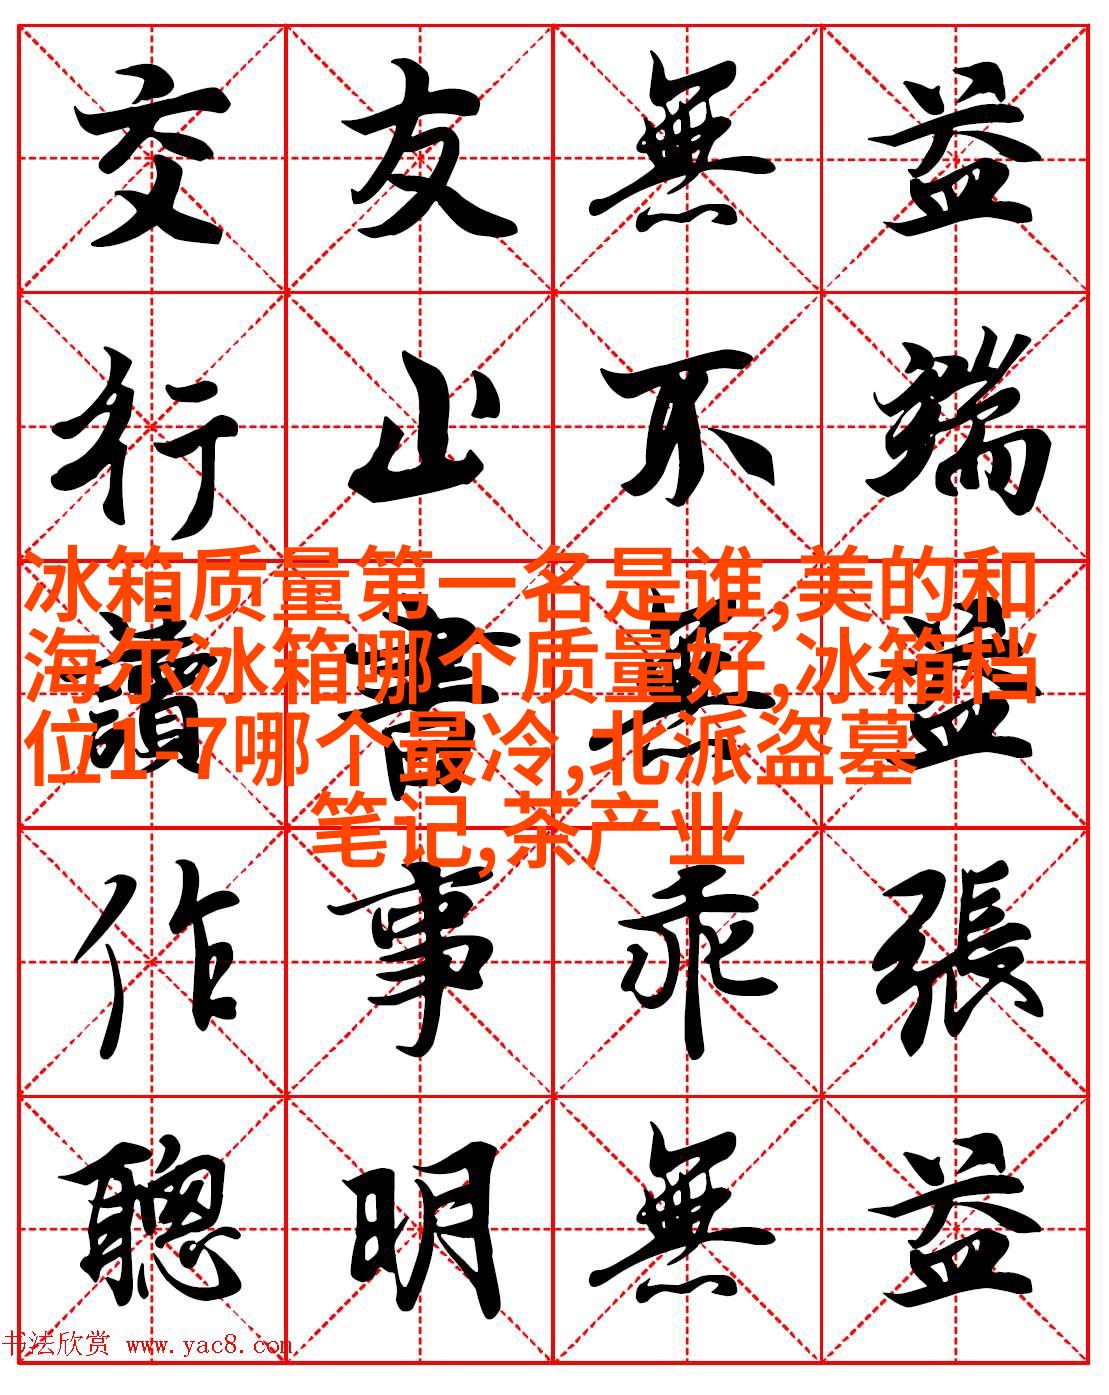 交友無益
行止不端
讀書無益
冰箱质量第一名是谁,美的和
海尔冰箱哪个质量好,冰箱档
位1-7哪个最冷,北派盗墓
笔记,茶产业
作事乖張
聰明無益
书法欣赏 www.yac8.com